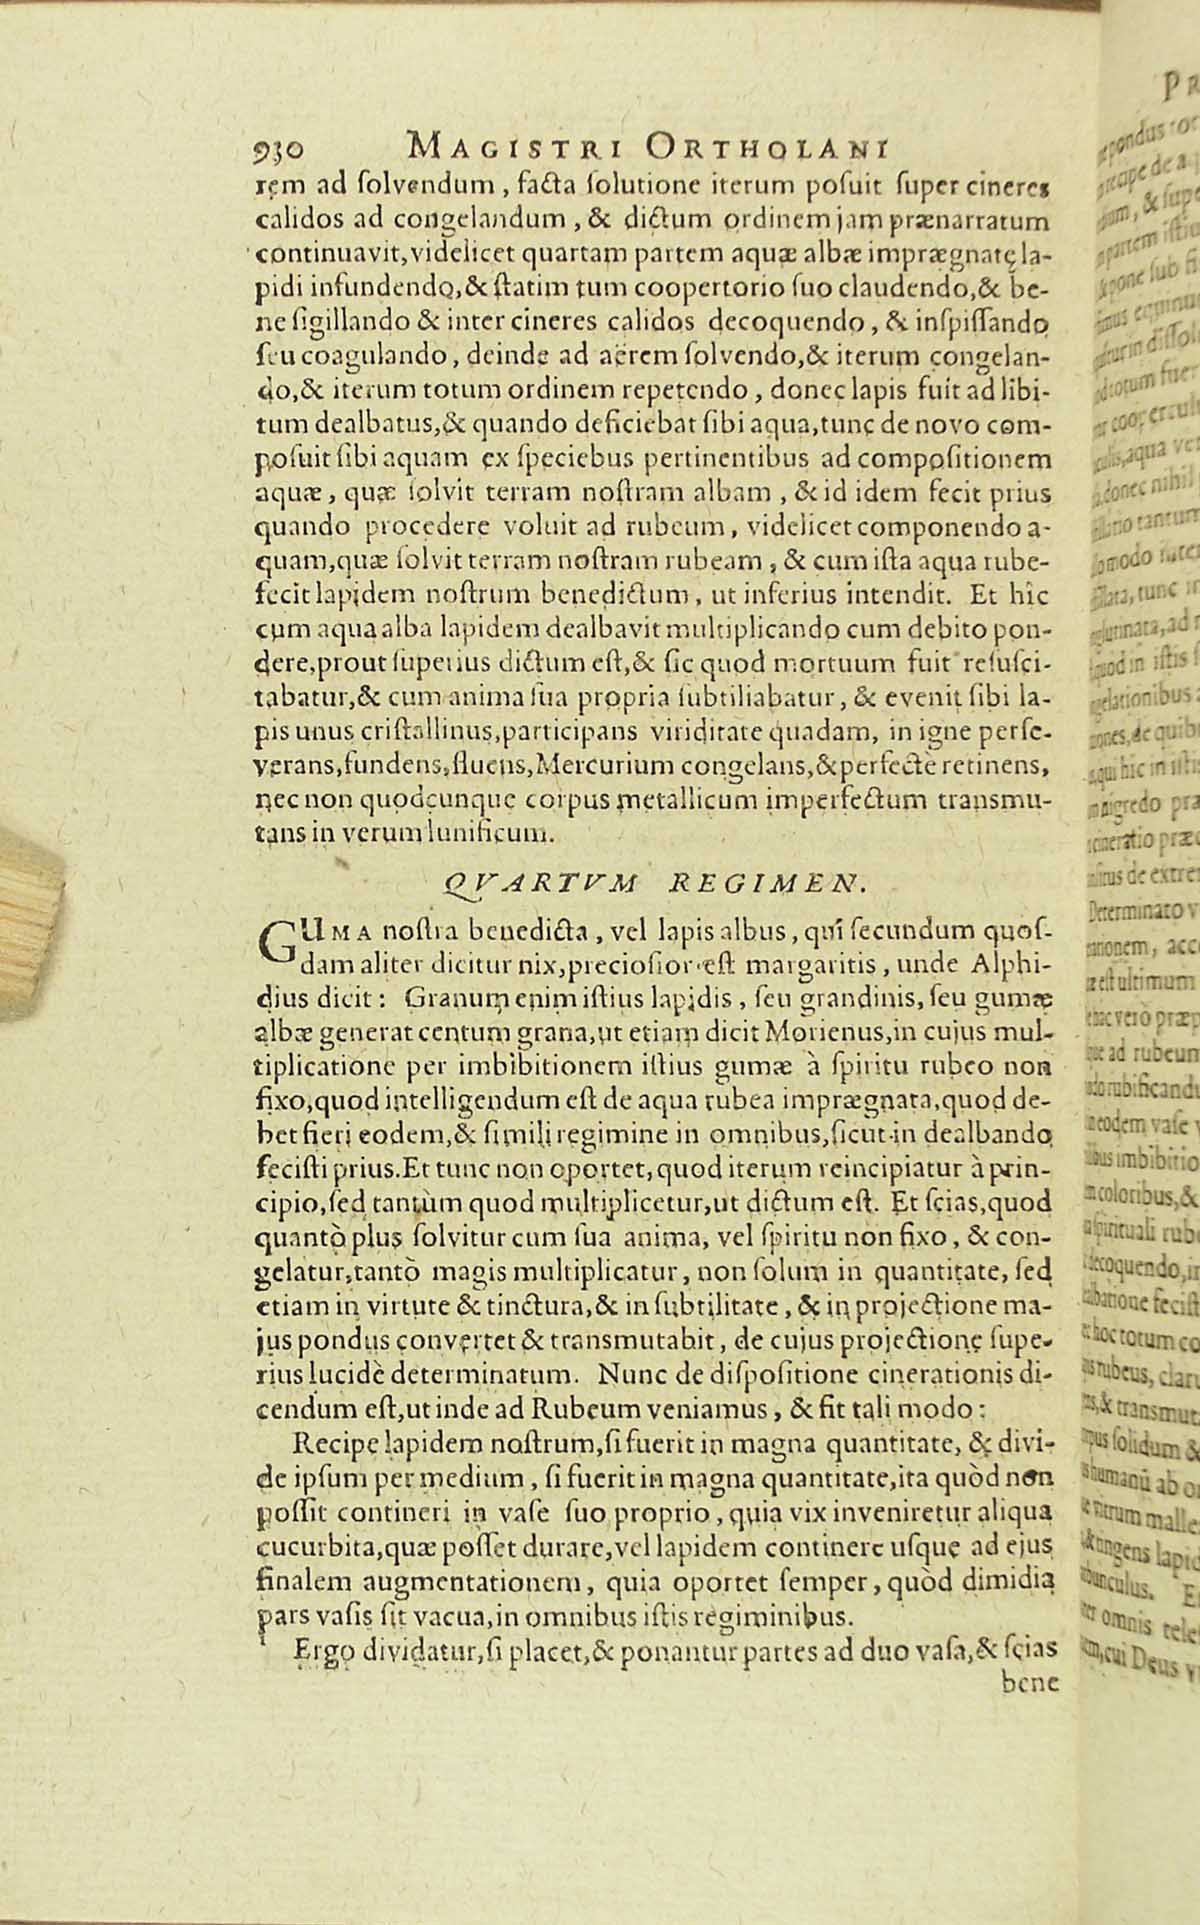 930 MAGISTRI ORTHOLANI
rem ad ſolvendum, facta ſolutione iterum poſuit ſuper cineres
calidos ad congelandum, & dictum ordinem jam prænarratum
continuavit, videlicet quartam partem aquæ albæ imprægnatę la-
pidi infundendo, & ſtatim tum coopertorio ſuo claudendo, & be-
ne ſigillando & inter cineres calidos decoquendo, & inſpiſſando
ſeu coagulando, deinde ad aerem ſolvendo, & iterum congelan-
do, & iterum totum ordinem repetendo, donec lapis fuit ad libi-
tum dealbatus, & quando deficiebat ſibi aqua, tunc de novo com-
poſuit ſibi aquam ex ſpeciebus pertinentibus ad compoſitionem
aquæ, quæ ſolvit terram noſtram albam, & id idem fecit prius
quando procedere voluit ad rubeum, videlicet componendo a-
quam, quæ ſolvit terram noſtram rubeam, & cum iſta aqua rube-
fecit lapidem noſtrum benedictum, ut inferius intendit. Et hîc
cum aqua alba lapidem dealbavit multiplicando cum debito pon-
dere, prout ſuperius dictum eſt, & ſic quod mortuum fuit reſuſci-
tabatur, & cum anima ſua propria ſubtiliabatur, & evenit ſibi la-
pis unus criſtallinus, participans viriditate quadam, in igne perſe-
verans, fundens, fluens, Mercurium congelans, & perfectè retinens,
nec non quodcunque corpus metallicum imperfectum transmu-
tans in verum lunificum.
QVARTVM REGIMEN.
GUMA noſtra benedicta, vel lapis albus, qui ſecundum quoſ-
dam aliter dicitur nix, precioſior eſt margaritis, unde Alphi-
dius dicit: Granum enim iſtius lapidis, ſeu grandinis, ſeu gumæ
albæ generat centum grana, ut etiam dicit Morienus, in cujus mul-
tiplicatione per imbibitionem iſtius gumæ à ſpiritu rubeo non
fixo, quod intelligendum eſt de aqua rubea imprægnata, quod de-
bet fieri eodem, & ſimili regimine in omnibus, ſicut in dealbando
feciſti prius. Et tunc non oportet, quod iterum reincipiatur à prin-
cipio, ſed tantùm quod multiplicetur, ut dictum eſt. Et ſcias, quod
quantò plus ſolvitur cum ſua anima, vel ſpiritu non fixo, & con-
gelatur, tantò magis multiplicatur, non ſolum in quantitate, ſed
etiam in virtute & tinctura, & in ſubtilitate, & in projectione ma-
jus pondus convertet & transmutabit, de cujus projectione ſupe-
rius lucidè determinatum. Nunc de diſpoſitione cinerationis di-
cendum eſt, ut inde ad Rubeum veniamus, & fit tali modo:
Recipe lapidem noſtrum, ſi fuerit in magna quantitate, & divi-
de ipſum per medium, ſi fuerit in magna quantitate, ita quòd non
poſſit contineri in vaſe ſuo proprio, quia vix inveniretur aliqua
cucurbita, quæ poſſet durare, vel lapidem continere uſque ad ejus
finalem augmentationem, quia oportet ſemper, quòd dimidia
pars vaſis ſit vacua, in omnibus iſtis regiminibus.
Ergo dividatur, ſi placet, & ponantur partes ad duo vaſa, & ſcias
bene